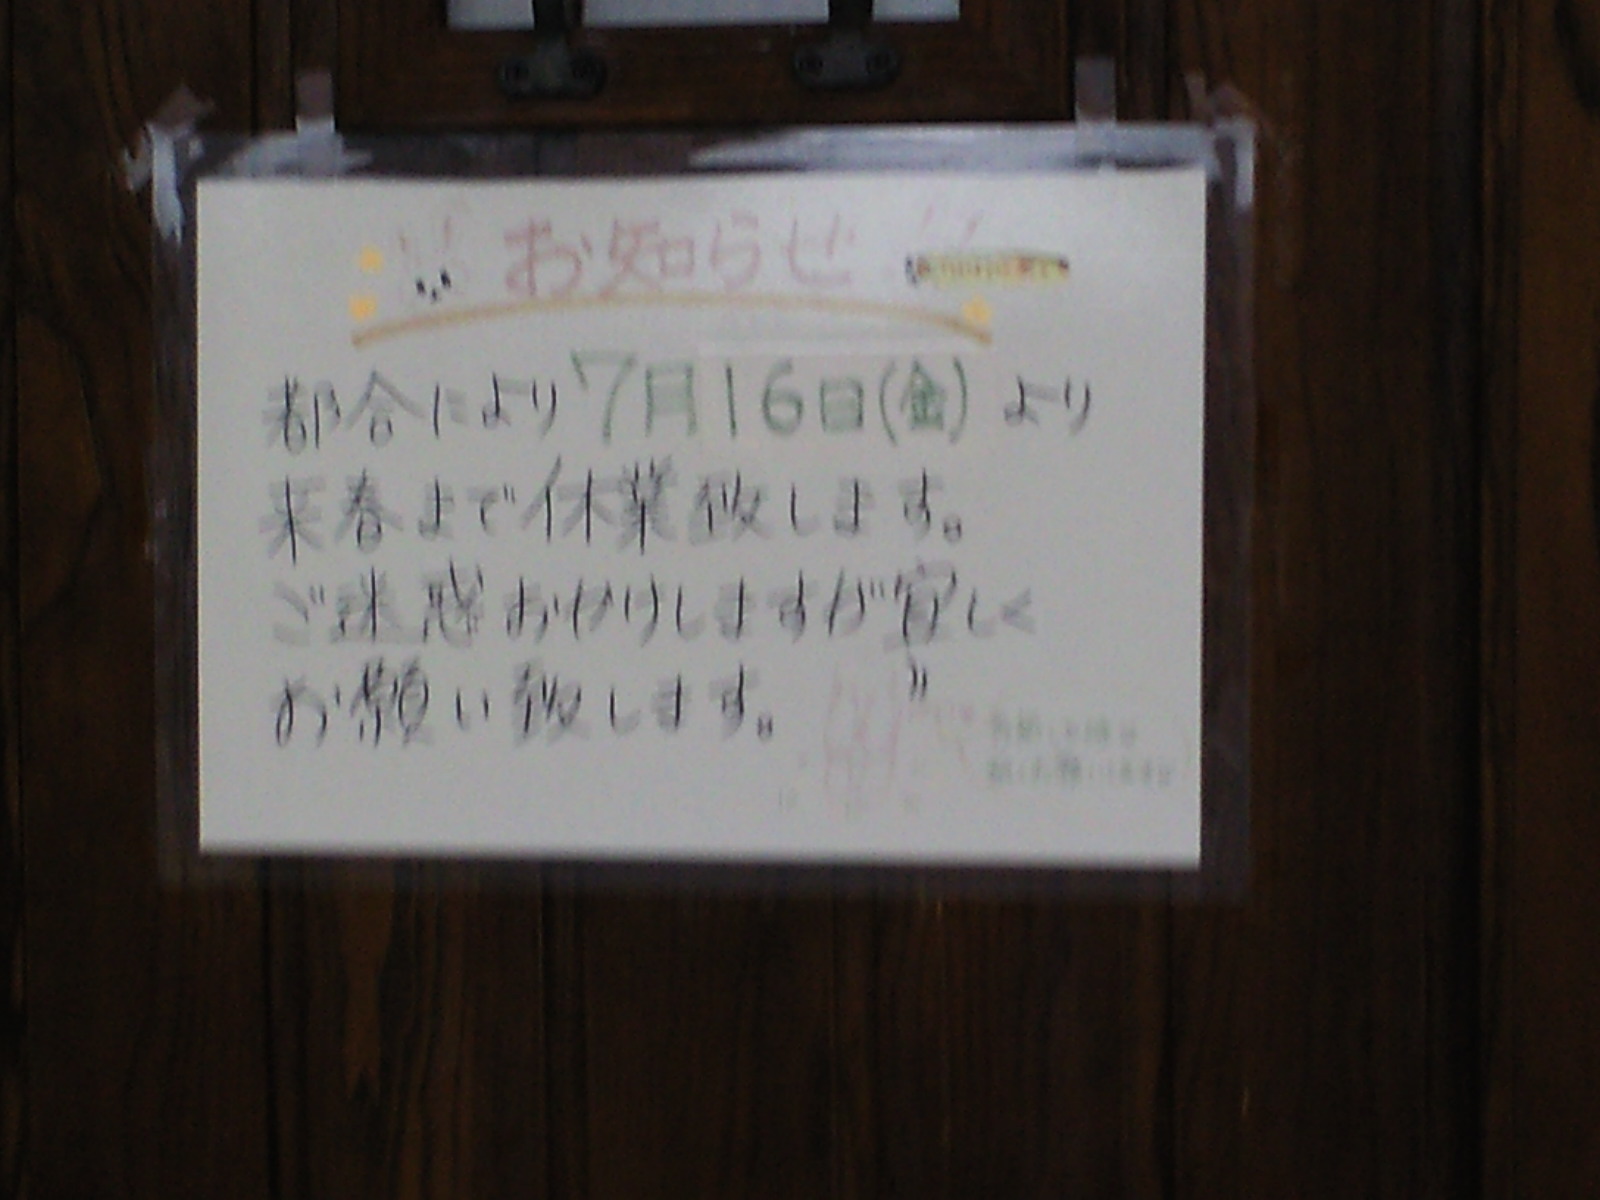 お知らせ
都合により7月16日(金)より
来春まで休業致します。
ご迷惑おかけしますが宜しく
お願い致します。